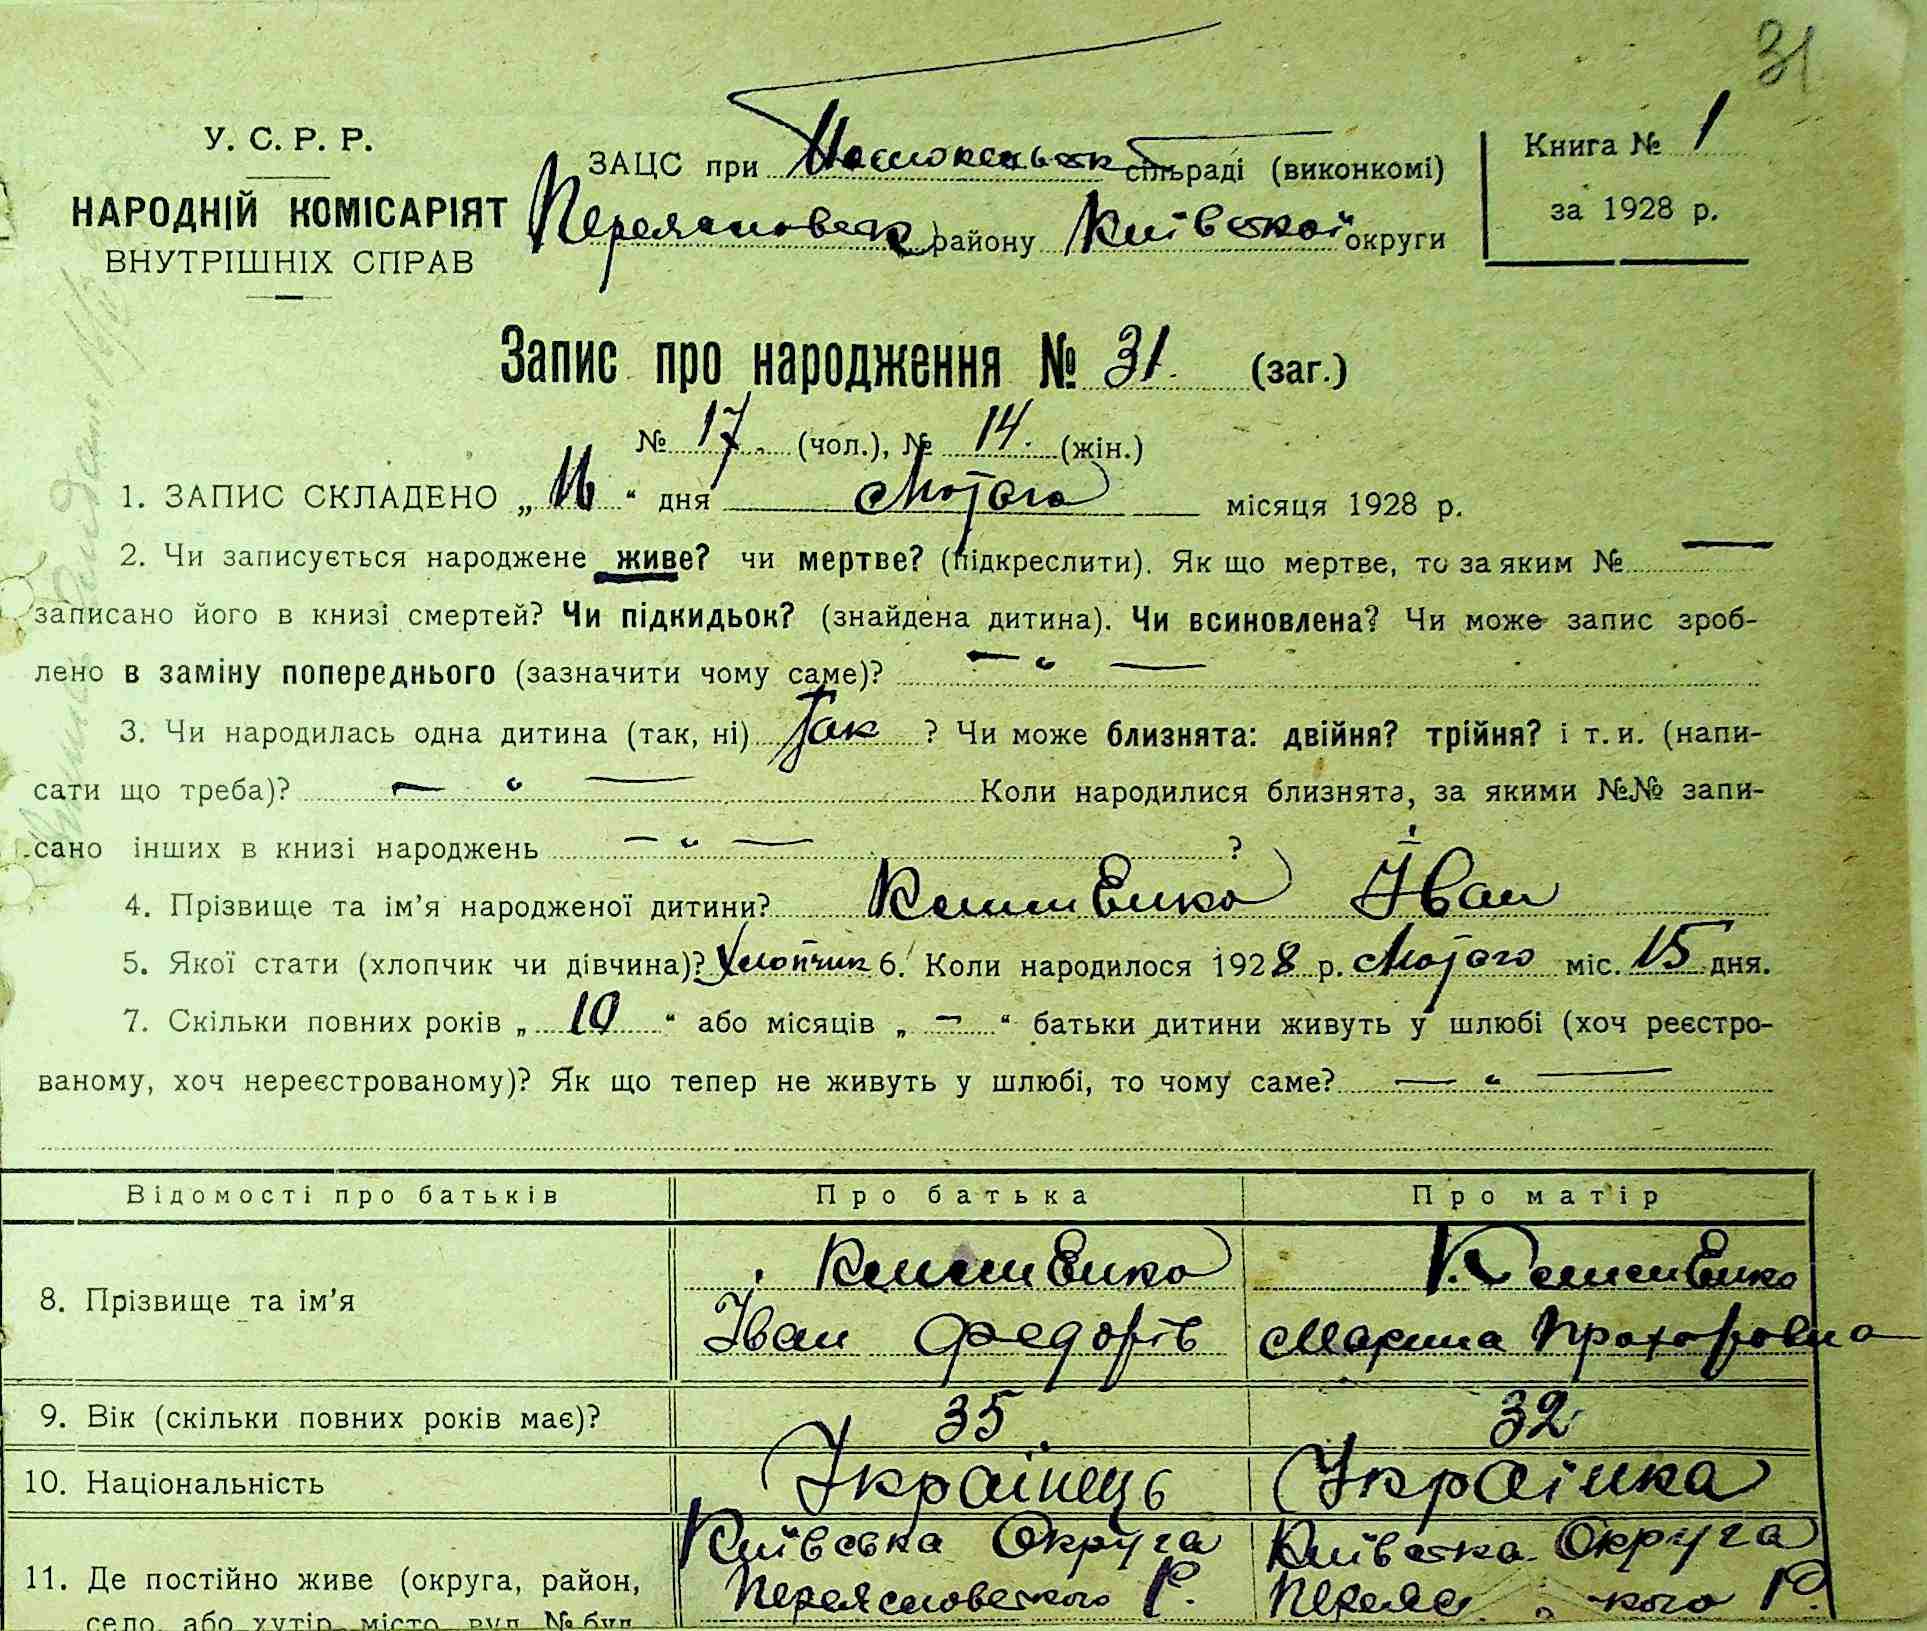 31
У. С. Р. Р.
НАРОДНІЙ КОМІСАРІЯТ
ВНУТРІШНІХ СПРАВ
ЗАЦС при сільраді (виконкомі)
Переяславськ району Київської округи
Книга № 1
за 1928 р.
Запис про народження № 31. (заг.)
№ 17. (чол.), № 14. (жін.)
1. ЗАПИС СКЛАДЕНО „16“ дня Лютого місяця 1928 р.
2. Чи записується народжене живе? чи мертве? (підкреслити). Як що мертве, то за яким № —
записано його в книзі смертей? Чи підкидьок? (знайдена дитина). Чи всиновлена? Чи може запис зроб-
лено в заміну попереднього (зазначити чому саме)? — „ —
3. Чи народилась одна дитина (так, ні) Так ? Чи може близнята: двійня? трійня? і т. и. (напи-
сати що треба)? — „ — Коли народилися близнята, за якими №№ запи-
сано інших в книзі народжень — „ — ?
4. Прізвище та ім’я народженої дитини? Іван
5. Якої стати (хлопчик чи дівчина)? Хлопчик 6. Коли народилося 1928 р. Лютого міс. 15 дня.
7. Скільки повних років „10“ або місяців „—“ батьки дитини живуть у шлюбі (хоч реєстро-
ваному, хоч нереєстрованому)? Як що тепер не живуть у шлюбі, то чому саме? — „ —
Відомості про батьків Про батька Про матір
8. Прізвище та ім’я
Іван Федорів Марина Прохоровна
9. Вік (скільки повних років має)? 35 32
10. Національність Українець Українка
Київська Округа Київська Округа
11. Де постійно живе (округа, район, Переяславського Р. Р.
село, або хутір, місто, вул. № буд.